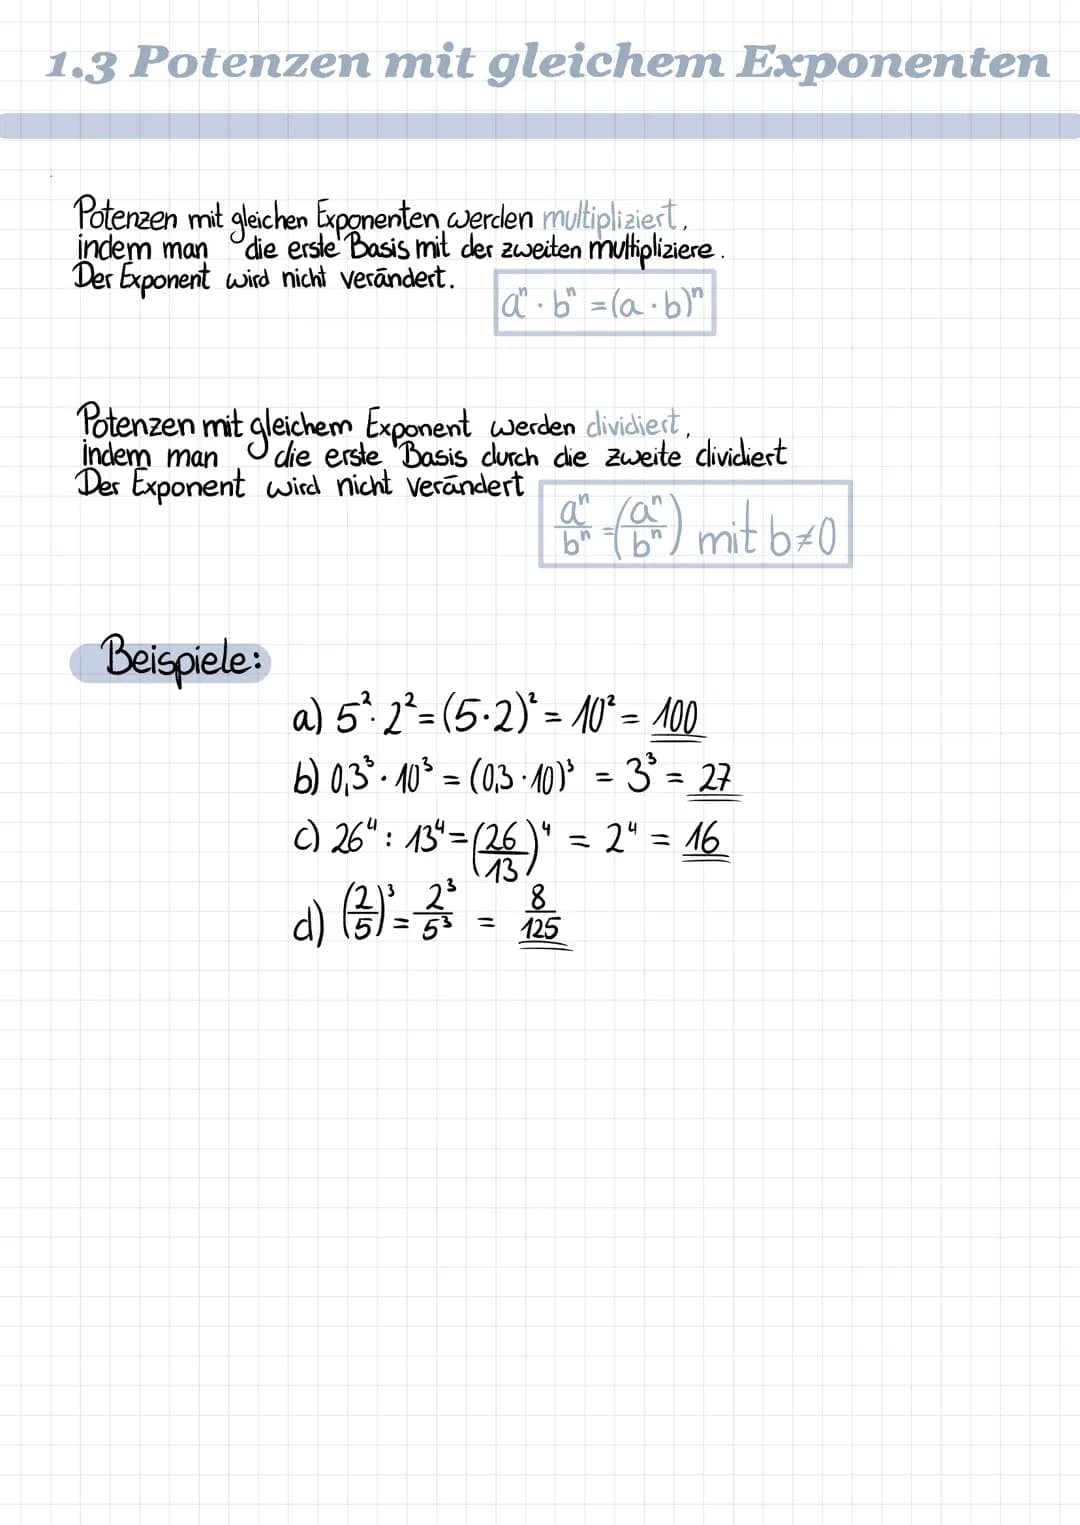 1.3 Potenzen mit gleichem Exponenten
Potenzen mit gleichen Exponenten werden multipliziert,
indem man die erste Basis mit der zweiten multipliziere.
Der Exponent wird nicht verändert.
aⁿ · bⁿ = (a · b)ⁿ
Potenzen mit gleichem Exponent werden dividiert,
indem man die erste Basis durch die zweite dividiert
Der Exponent wird nicht verändert
aⁿ/bⁿ = (aⁿ/bⁿ) mit b≠0
Beispiele:
a) 5² · 2² = (5·2)² = 10² = 100
b) 0,3³ · 10³ = (0,3 · 10)³ = 3³ = 27
c) 26⁴ : 13⁴ = (26/13)⁴ = 2⁴ = 16
d) (2/5)³ = 2³/5³ = 8/125